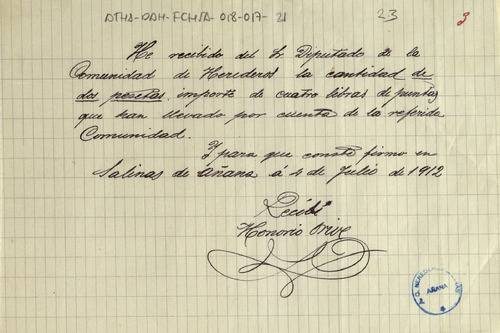 ATHA-DAH-FCHSA-018-017-21
23
3
He recibido del Sr Diputado de la
Comunidad de Herederos la cantidad de
dos pesetas, importe de cuatro libras de puntas
que han llevado por cuenta de la referida
Comunidad.
Y para que conste firmo en
Salinas de Añana á 4 de Julio de 1912
Recibí
Honorio
AÑANA